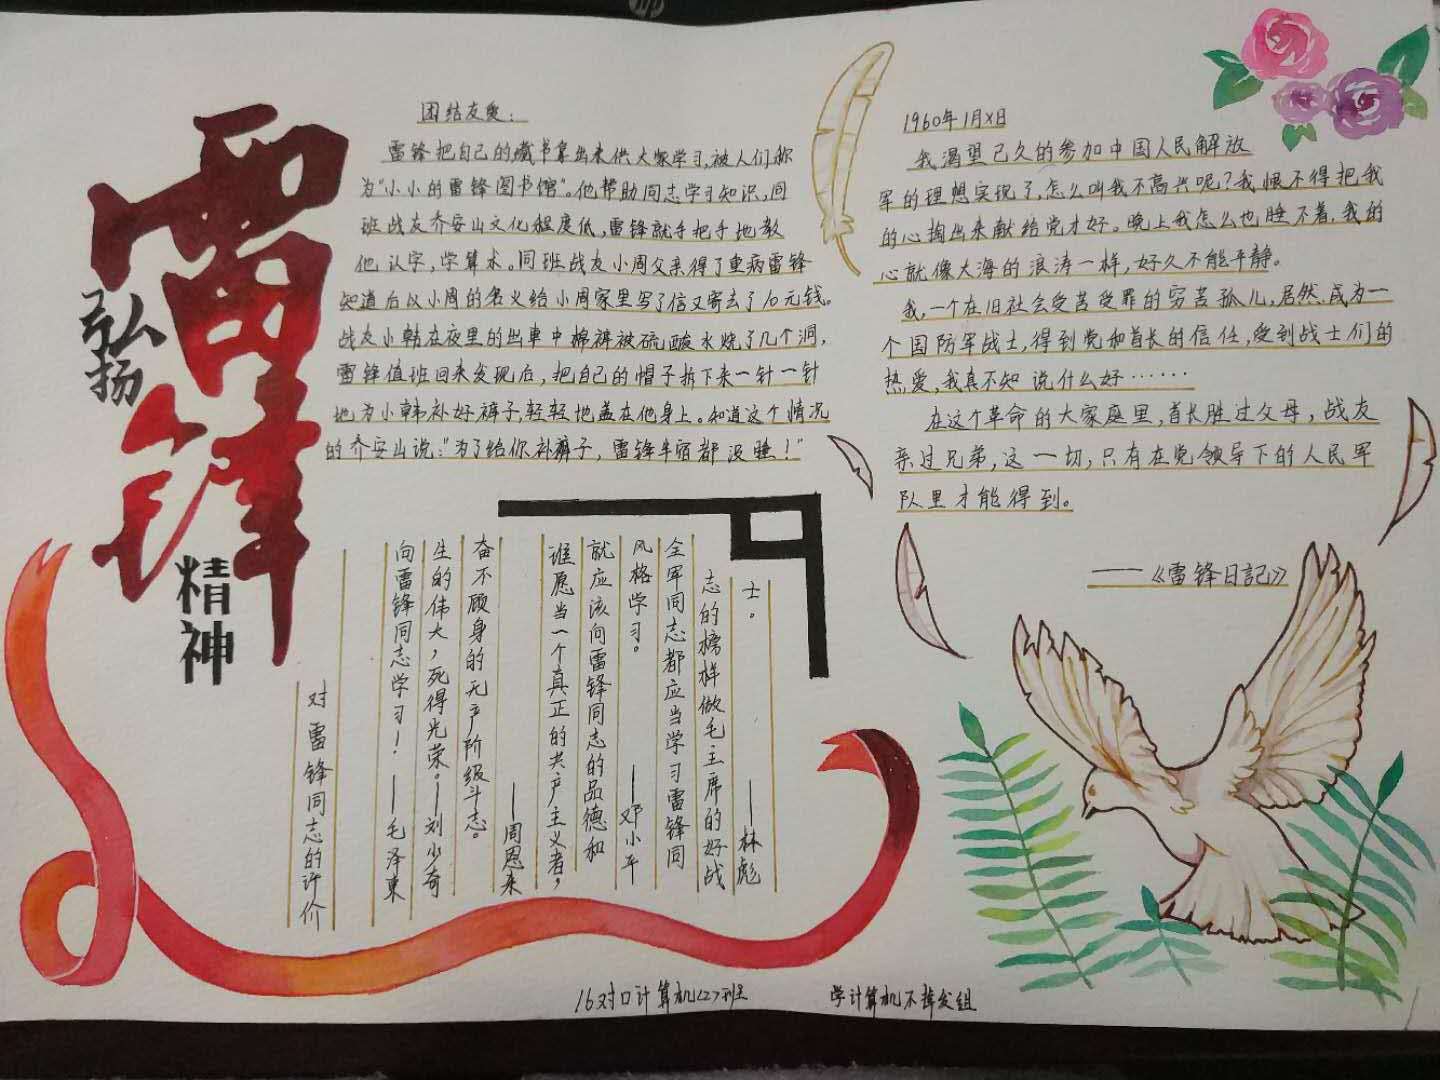 弘扬
雷锋
精神
团结友爱：
雷锋把自己的藏书拿出来供大家学习，被人们称
为“小小的雷锋图书馆”。他帮助同志学习知识，同
班战友乔安山文化程度低，雷锋就手把手地教
他认字，学算术。同班战友小周父亲得了重病雷锋
知道后以小周的名义给小周家里写了信又寄去了10元钱。
战友小韩在夜里的出車中棉裤被硫酸水烧了几个洞，
雷锋值班回来发现后，把自己的帽子拆下来一针一针
地为小韩补好裤子，轻轻地盖在他身上。知道这个情况
的乔安山说：“为了给你补裤子，雷锋半宿都没睡！”
1960年1月X日
我渴望已久的参加中国人民解放
军的理想实现了，怎么叫我不高兴呢？我恨不得把我
的心掏出来献给党才好。晚上我怎么也睡不着，我的
心就像大海的浪涛一样，好久不能平静。
我，一个在旧社会受苦受罪的穷苦孤儿，居然，成为一
个国防军战士，得到党和首长的信任，受到战士们的
热爱，我真不知说什么好······
在这个革命的大家庭里，首长胜过父母，战友
亲过兄弟，这一切，只有在党领导下的人民军
队里才能得到。
——《雷锋日記》
对雷锋同志的评价
向雷锋同志学习！——毛泽東
生的伟大，死得光荣。—刘少奇
奋不顾身的无产阶级斗志。
——周恩来
谁愿当一个真正的共产主义者，
就应该向雷锋同志的品德和
风格学习。——邓小平
全军同志都应当学习雷锋同
志的榜样做毛主席的好战
士。——林彪
16对口计算机<2>班
学计算机不掉发组